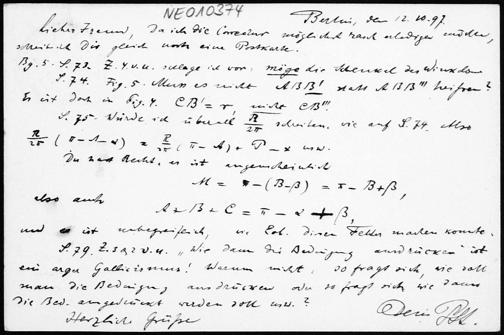 NEO10374
Berlin, den 12.10.97.
Lieber Freund, Da ich die Correctur möglichst rasch erledigen möchte,
schreib ich Dir gleich noch eine Postkarte.
Bg. 5. S. 73. Z. 4 v. u. schlage ich vor: möge die Schenkel des Winkels
S. 74. Fig. 5. Muss es nicht ABB' statt ABB''' heissen?
Es ist doch in Fig. 4. CB' = r, nicht CB'''.
S. 75. Würde ich überall R/2π schreiben, wie auf S. 74. Also
R/2π (π - A - α) = R/2π (π - A) + P - α usw.
Du hast Recht, es ist augenscheinlich
M = π - (B-β) = π - B + β,
also auch
A + B + C = π - α + β,
und es ist unbegreiflich, wie Lob. diesen Fehler machen konnte.
S. 79. Z. 3 u. 2 v. u. „Wie dann die Bedingung ausdrücken" ist
ein arger Gallicismus! Warum nicht: so fragt sich, wie soll
man die Bedingung ausdrücken oder so fragt sich wie dann
die Bed. ausgedrückt werden soll usw.?
Herzliche Grüße Dein